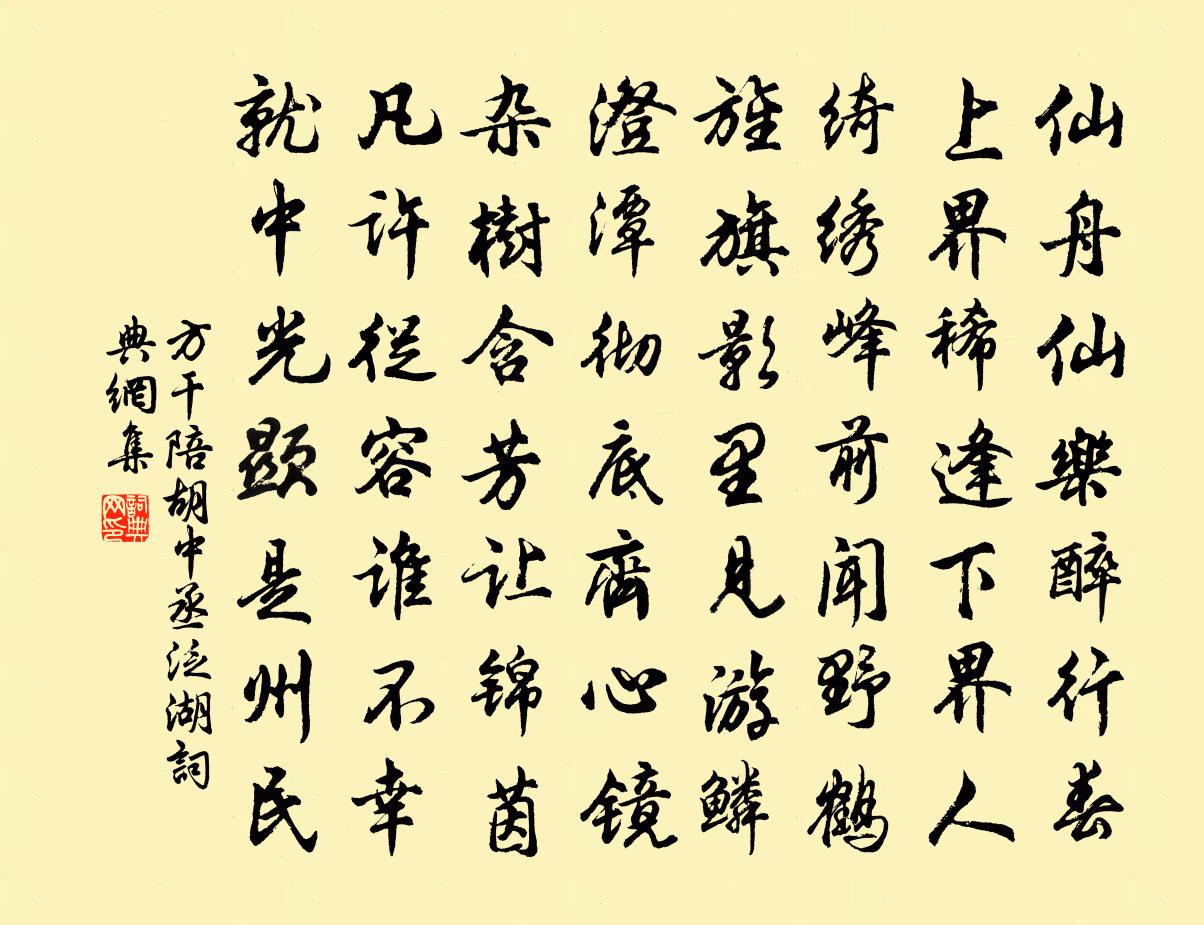 仙舟仙樂醉行春
上界稀逢下界人
绮绣峰前闻野鹤
旌旗影里見游鳞
澄潭彻底齊心镜
杂樹含芳让锦茵
凡许從容谁不幸
就中光顕是州民
方干陪胡中丞泛湖詞
典網集
詞典
网印